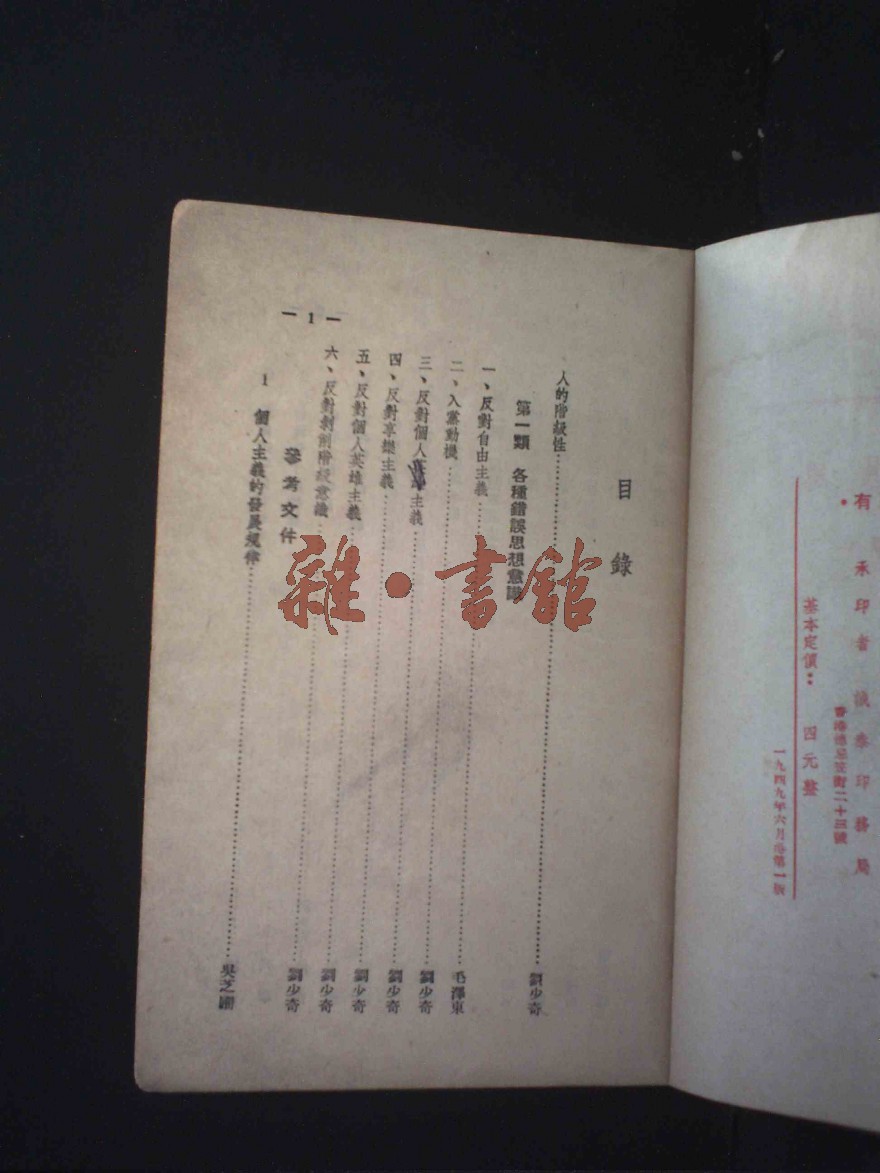 有
承印者 誠泰印務局
香港德忌笠街二十三號
基本定價：四元整
一九四九年六月港第一版
目錄
人的階級性 劉少奇
第一類 各種錯誤思想意識
一、反對自由主義 毛澤東
二、入黨動機 劉少奇
三、反對個人主義 劉少奇
四、反對享樂主義 劉少奇
五、反對個人英雄主義 劉少奇
六、反對剝削階級意識 劉少奇
參考文件
1 個人主義的發展規律 吳芝圃
— 1 —
雜·書館